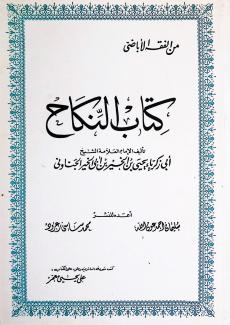 من الفقه الأباضي
كتاب النكاح
تأليف الإمام العلامة الشيخ
أبي زكرياء يحيى بن الخير بن أبي الخير الجناوني
أعده للنشر
سليمان أحمد عون الله
محمد ساسي زعرود
علي يحيى معمر